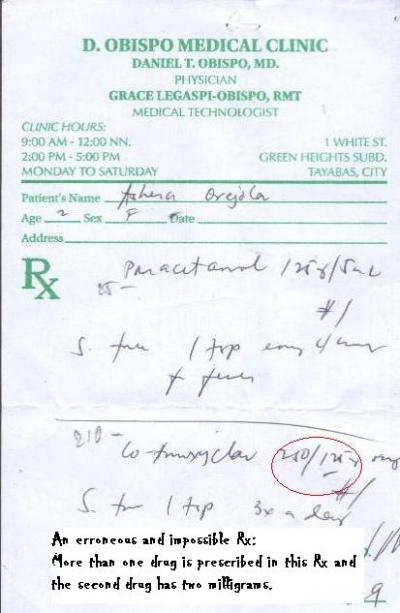 D. OBISPO MEDICAL CLINIC
DANIEL T. OBISPO, MD.
PHYSICIAN
GRACE LEGASPI-OBISPO, RMT
MEDICAL TECHNOLOGIST
CLINIC HOURS:
9:00 AM - 12:00 NN.
2:00 PM - 5:00 PM
MONDAY TO SATURDAY
1 WHITE ST.
GREEN HEIGHTS SUBD.
TAYABAS, CITY
Patient's Name Orejola
Age 2 Sex F Date
Address
Rx
Paracetamol 125/5mL
#1
S. 1 tsp every 4
210-
250/125
#1
S. 1 tsp 3x a day
An erroneous and impossible Rx:
More than one drug is prescribed in this Rx and
the second drug has two milligrams.